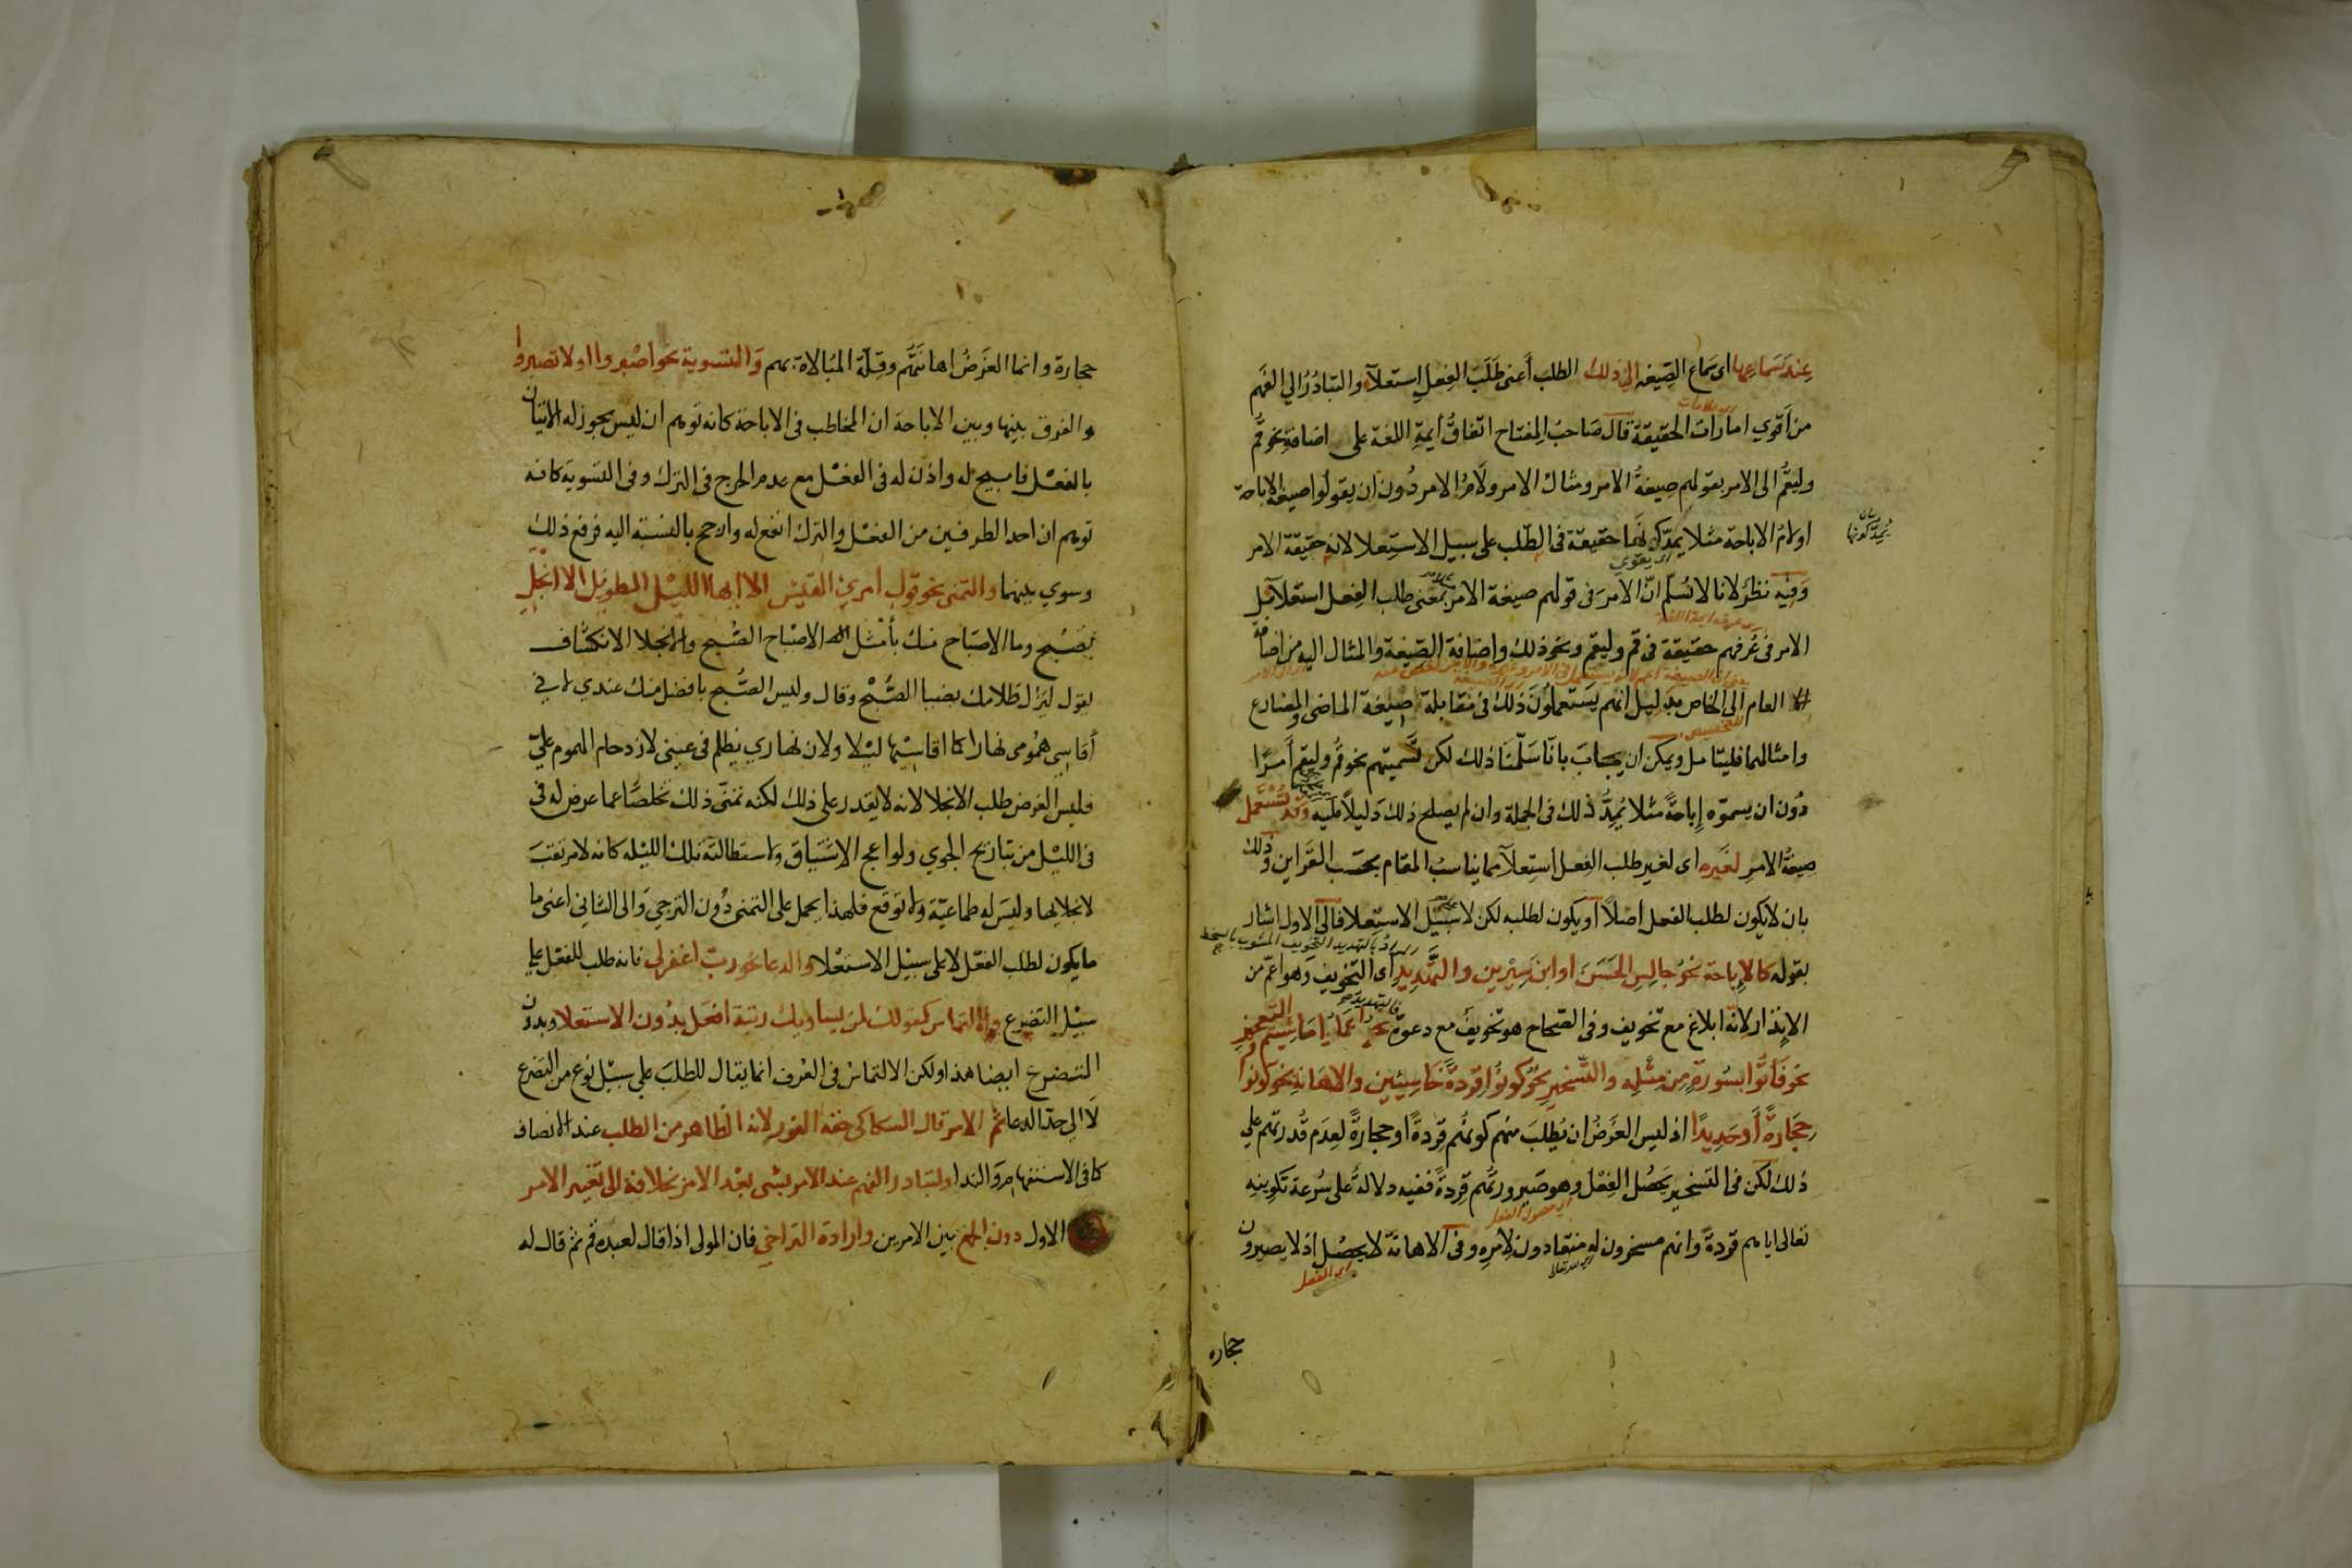 عِندَ سَمَاعِهَا اى سَماع الصّيغه الى ذلك الطلب أعنى طَلَبَ الفِعلِ اِستعلآء والتبادُرُ الي الفَهم
من أقوي امارات الحقيقة قال صَاحبُ المِفتاح اتّفاقُ أيمةِ اللغة على اضافةِ نحو قُم
وليقُم الى الامر بقولهِم صيغةُ الامر ومثالُ الامر ولامُ الامر دُون ان يقولوا صيغة الاباحة
اولامُ الاباحة مثلا يمدّ كونهَا حقيقةً فى الطّلب على سبيل الاستِعلا لانه حقيقة الامر
وَفيهِ نظَر لانا لا نُسلّم انّ الامرَ فى قولهم صيغة الامر بمَعنى طلب الفِعل استعلآ بل
الامر فى عُرفهم حقيقة فى قم وليقم ونحو ذلك واضافة الصّيغة والمثال اليه من اضافة
العام الى الخاص بدَليل انهم يَستعملونَ ذلكَ فى مقابلة صيغة الماضى والمضارع
وامثالهما فليتامل ويمكن ان يجابَ بانّا سَلّمنَا ذلك لكن تسَميتهم نحو قُم وليقم أمرًا
دُون ان يسموّه إباحةً مثلا يُمِدُّ ذلك فى الجملة وان لم يصلح ذلك دَليلاً عليه وَقد تُسْتَعمل
صيغةُ الامرِ لغَيره اى لغير طلب الفِعل استِعلآ مما يناسبُ المقام بحسَب القَراين وذلك
بان لا يكون لطلب الفعل اصلاً أو يكون لطلبه لكن لا سَبيل الاستِعلا فالى الاول اشار
بقوله كالإباحة نحو جالِسِ الحَسَنَ او ابنَ سِيْرين والتهَّديدِ أى التخويف وَهو اعمّ من
الانذار لانه ابلاغ مع تخويف وفى الصّحاح هو تخويفٌ مع دعوة نحو اعمَلُوا مَا شِئتم والتعجيزِ
نحو فَأتوُا بسُورة مِن مثْلِه والتّسخيرِ نحو كونوُا قِردَةً خَاسِيئين والاهَانَةِ نحو كونوا
حِجَارةً أو حَدِيدًا اذ ليس الغرَضُ ان يُطلبَ منهم كونُهُم قِردةً او حجارةً لعِدَم قُدرتهم على
ذلك لكن فى التسَخير يحَصُل الفِعْل وهو صَيرورتُهم قِردةً ففيه دلالةُ على سُرعة تكوينِه
تعالى اياهم قردةً وانهم مسخرون له منقادون لامرِه وفى الاهانة لا يحصُل اذ لا يصيرون
حجاره
حجارة وانما الغَرضُ اهانتهُم وقِلّة المُبَالاة بهم وَالتسوية نحو اصْبروا اولا تصبروا
والفرق بينها وبين الاباحة ان المخاطب فى الاباحة كانه توهم ان ليس يجوز له الاتيان
بالفعْل فابيح له واذن له فى الفعْل مع عدم الحرج فى الترك وفى التسوية كانه
توهم ان احد الطرفين من الفعْل والترك انفع له وارجح بالنسْبة اليه فرفع ذلك
وسوي بينهما والتمنى نحو قول امرئ القيْس الا ايها الليْل الطويْل الا انجلِ
بصُبْح وما الاصبَاح منك بأمْثل الاصْباح الصُّبح والانجلا الانكشاف
يقول ليَزُل ظلامك بضيا الصُّبْح وقال وليس الصُّبح بافضل منك عندي لانى
أقاسِى همُومى نهارا كما اقاسيْها ليْلا ولان نهاري يظلم فى عينى لازدحام الهموم علىّ
فليس الغرض طلب الانجلا لانه لا يقدر على ذلك لكنه تمنّى ذلك تخلصًّا عما عرض له فى
فى الليْل من تباريح الجوي ولواعج الاشتيَاق ولاستطالته تلك الليْله كانه لا يرتقبُ
لانجلايها وليَسَ له طماعيّة ولا توقع فلهذا يحمل على التمنى دُون الترجي وَالى الثانى اعنى ما
ما يكون لطلب الفعْل لا على سبيْل الاستعْلا والدعا نحو ربّ اغفر لى فانه طلب للفعْل على
سبيْل التضرع والالتماس كقولك لمن يساويك رتبة افعَل بدُون الاستعلا وبدون
التضرع ايضا هذا ولكن الالتماسُ فى العُرف انما يقال للطلبَ على سبيْل نوع من التضرع
لَا الى حدّ الدعا ثم الامر قال السكاكى حقه الفور لانه الظاهر من الطلب عند الانصاف
كما فى الاستفهام وَالندا ولتبادر الفهم عند الامر بشى بعْد الامر بخلافه الى تغيير الامر
الاول دون الجمع بين الامرين وارادة التراخى فان المولى اذا قال لعبده قم ثم قال له